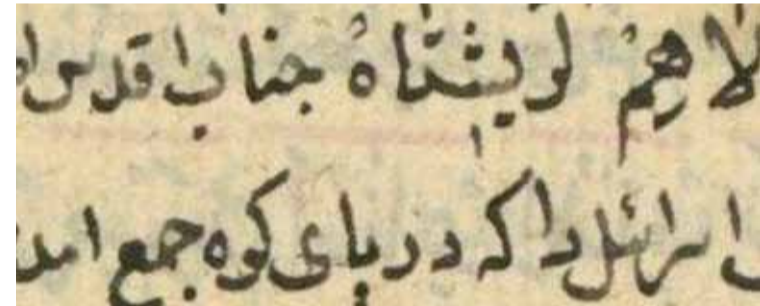 لاهِیمْ لویشتاهُ جناب اقدس
اسرائل را که در پای کوه جمع امد